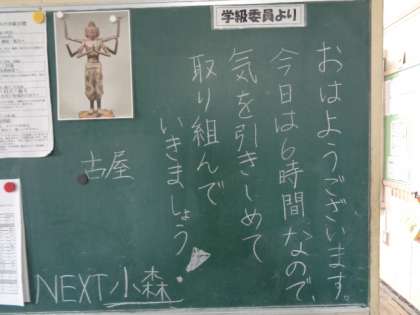 学級委員より
おはようございます。
今日は6時間なので、
気を引きしめて
取り組んで
いきましょう
古屋
NEXT 小森